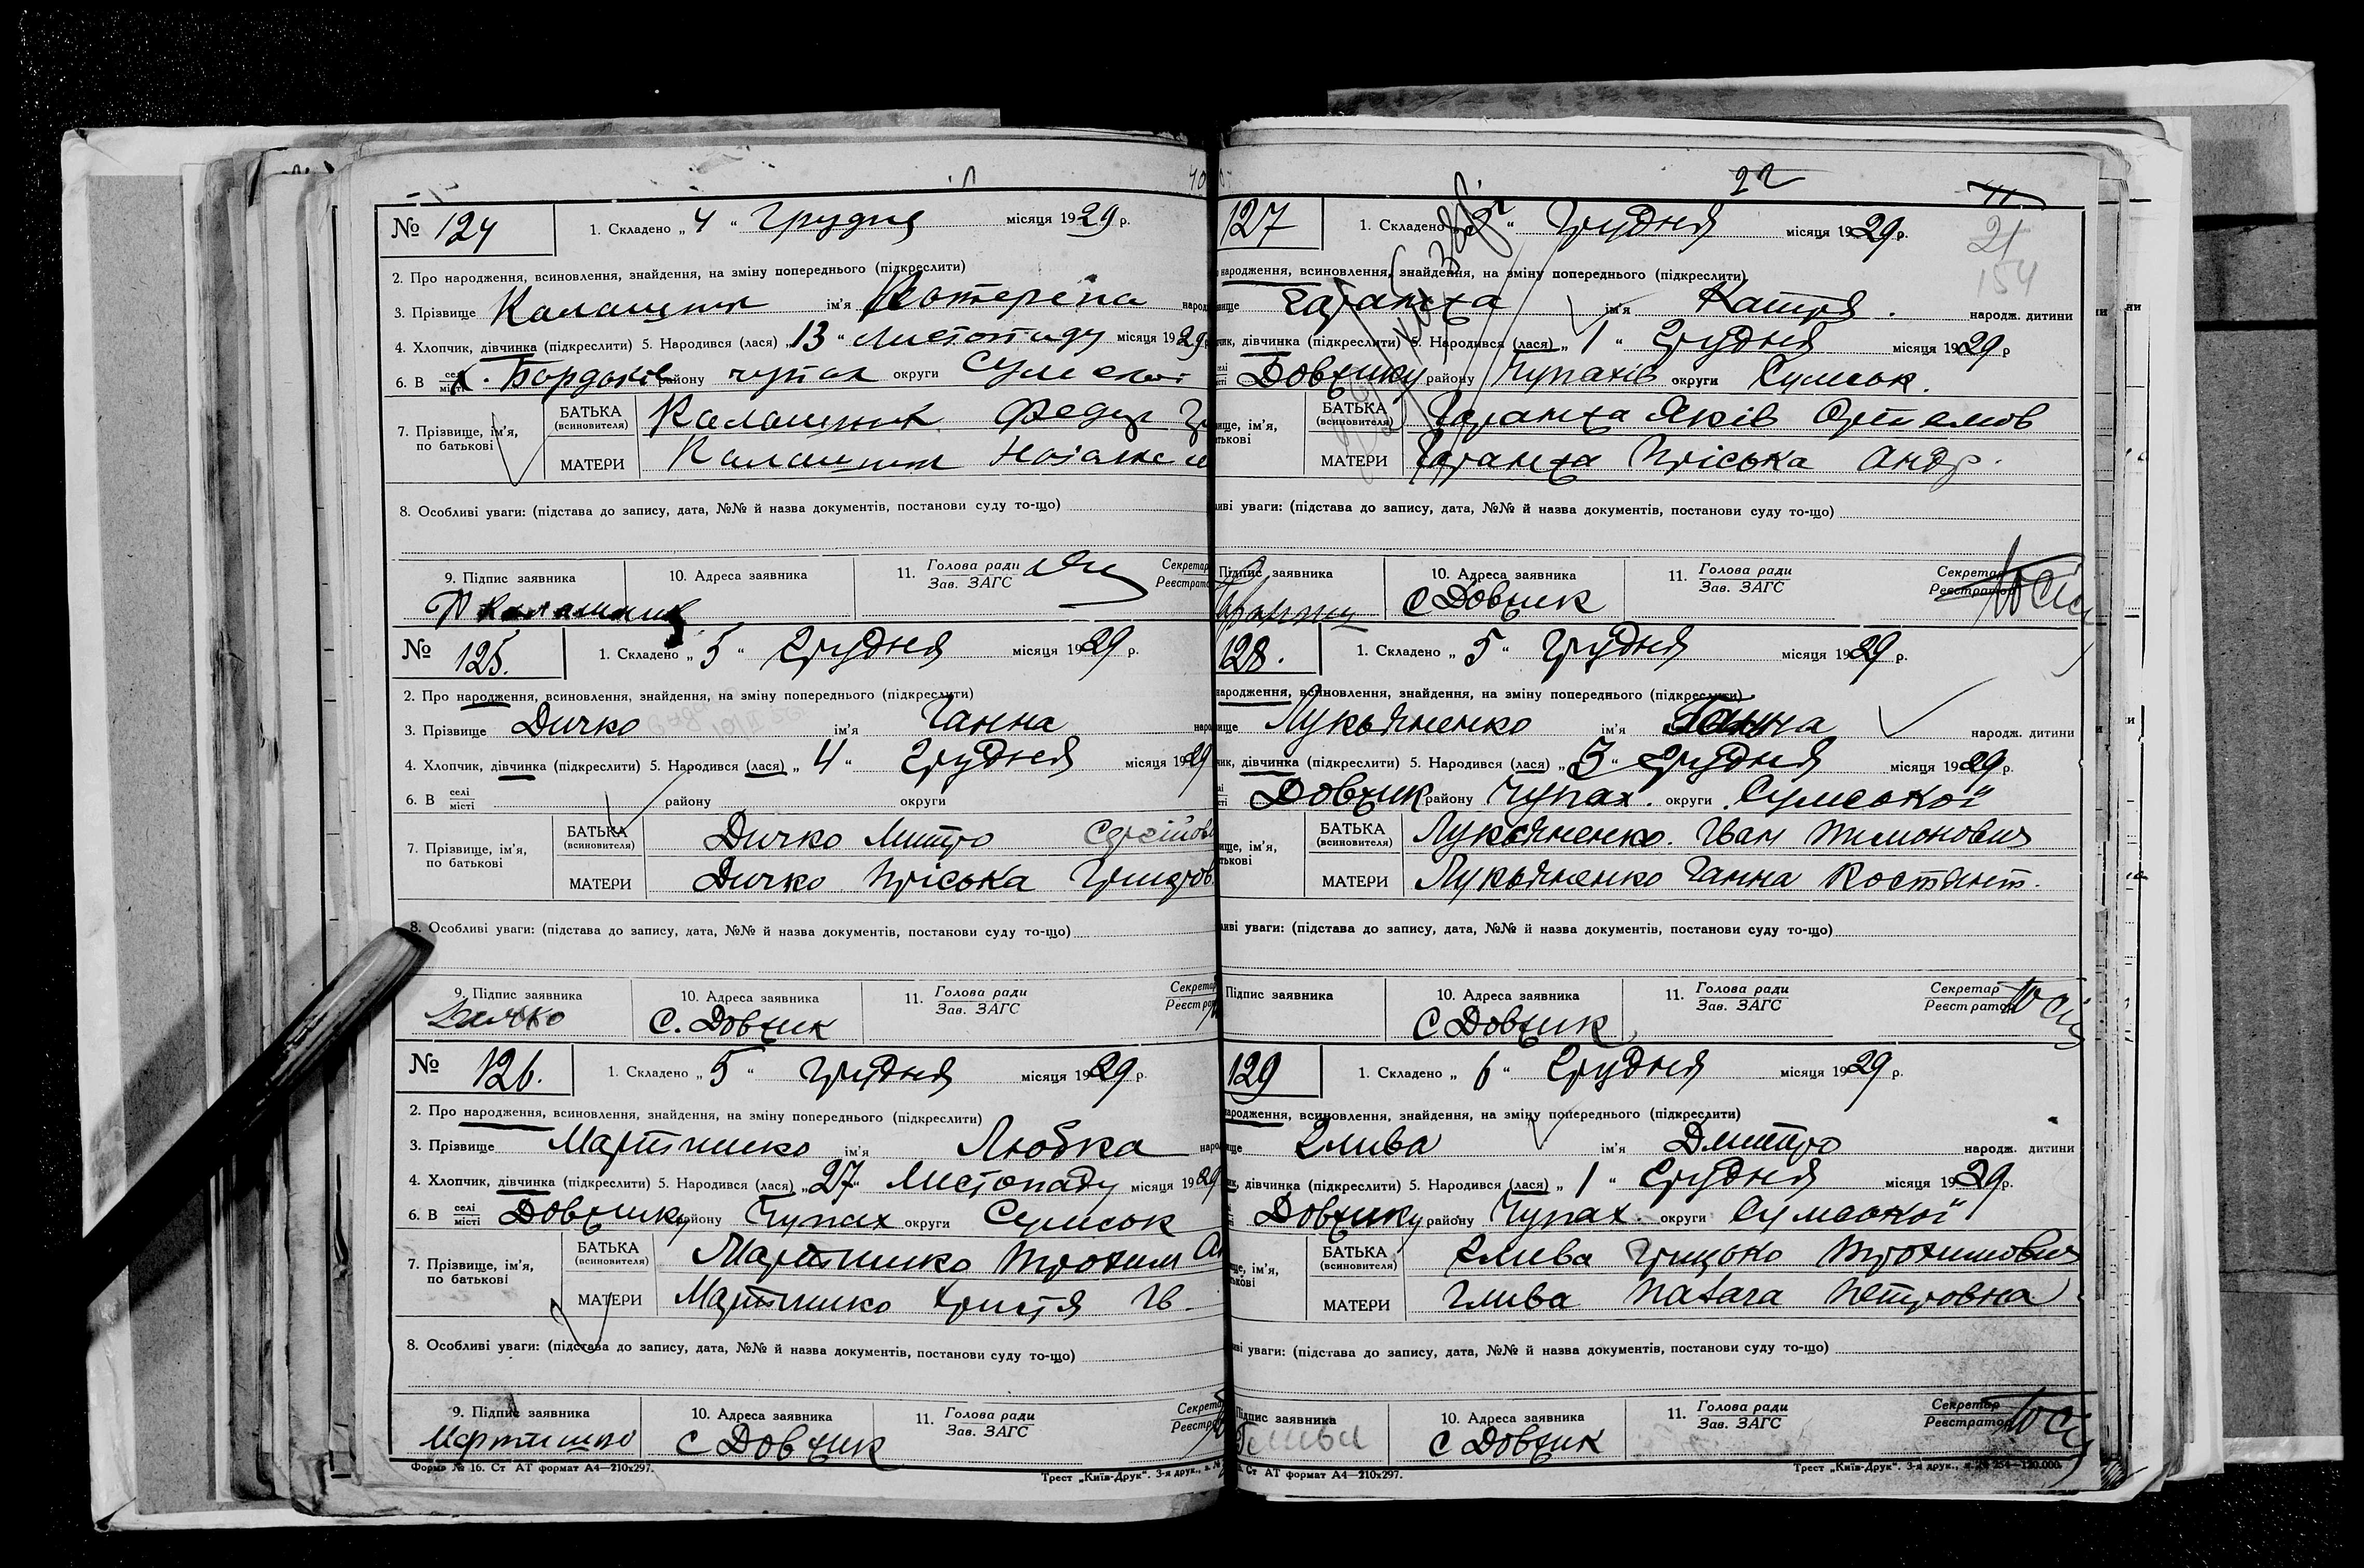 № 124
1. Складено „ 4 “ Грудня місяця 1929 р.
2. Про народження, всиновлення, знайдення, на зміну попереднього (підкреслити)
3. Прізвище Калашник ім'я Катерина народ
4. Хлопчик, дівчинка (підкреслити) 5. Народився (лася) „ 13 “ Листопаду місяця 1929 р
6. В селі місті х. району чупах округи Сумської
7. Прізвище, ім'я, по батькові
БАТЬКА (всиновителя) Калашник Федір
МАТЕРИ Калашник
8. Особливі уваги: (підстава до запису, дата, №№ й назва документів, постанови суду то-що)
9. Підпис заявника 10. Адреса заявника 11. Голова ради Зав. ЗАГС Секретар Реєстрато
Калашник
№ 125.
1. Складено „ 5 “ Грудня місяця 1929 р.
2. Про народження, всиновлення, знайдення, на зміну попереднього (підкреслити)
3. Прізвище Дичко ім'я Ганна наро
4. Хлопчик, дівчинка (підкреслити) 5. Народився (лася) „ 4 “ Грудня місяця 1929
6. В селі місті району округи
7. Прізвище, ім'я, по батькові
БАТЬКА (всиновителя) Дичко Митро
МАТЕРИ Дичко Пріська Григоров
8. Особливі уваги: (підстава до запису, дата, №№ й назва документів, постанови суду то-що)
9. Підпис заявника 10. Адреса заявника 11. Голова ради Зав. ЗАГС Секретар Реєстра
Дичко С. Довжик
№ 126.
1. Складено „ 5 “ Грудня місяця 1929 р.
2. Про народження, всиновлення, знайдення, на зміну попереднього (підкреслити)
3. Прізвище Мартишко ім'я Любка наро
4. Хлопчик, дівчинка (підкреслити) 5. Народився (лася) „ 27 “ Листопаду місяця 1929
6. В селі місті Довжику району Чупах округи Сумськ
7. Прізвище, ім'я, по батькові
БАТЬКА (всиновителя) Мартишко Трохим
МАТЕРИ Мартишко Христя Ів.
8. Особливі уваги: (підстава до запису, дата, №№ й назва документів, постанови суду то-що)
9. Підпис заявника 10. Адреса заявника 11. Голова ради Зав. ЗАГС Секрета Реєстр
Мартишко С Довжик
Форма № 16. Ст АТ формат А4—210х297. Трест „Київ-Друк“. 3-я друк.,
22
21
154
127
1. Складено „ “ Грудня місяця 1929 р.
народження, всиновлення, знайдення, на зміну попереднього (підкреслити)
Гаранжа ім'я Катря. народж. дитини
дівчинка (підкреслити) 5. Народився (лася) „ 1 “ Грудня місяця 1929 р
Довжику району Чупахів округи Сумськ.
ім'я,
БАТЬКА (всиновителя) Гаранжа Яків Артемов
МАТЕРИ Гаранжа Пріська Андр.
уваги: (підстава до запису, дата, №№ й назва документів, постанови суду то-що)
Підпис заявника 10. Адреса заявника 11. Голова ради Зав. ЗАГС Секретар Реєстратор
С Довжик
128.
1. Складено „ 5 “ Грудня місяця 1929 р.
народження, всиновлення, знайдення, на зміну попереднього (підкреслити)
Лукьяненко ім'я Ганна народж. дитини
дівчинка (підкреслити) 5. Народився (лася) „ 3 “ Грудня місяця 1929 р.
Довжик району Чупах. округи Сумської
ім'я,
БАТЬКА (всиновителя) Лукьяненко. Іван Тимонович
МАТЕРИ Лукьяненко Ганна Костянт.
уваги: (підстава до запису, дата, №№ й назва документів, постанови суду то-що)
Підпис заявника 10. Адреса заявника 11. Голова ради Зав. ЗАГС Секретар Реєстратор
С Довжик
129
1. Складено „ 6 “ Грудня місяця 1929 р.
народження, всиновлення, знайдення, на зміну попереднього (підкреслити)
Глива ім'я Дмитро народж. дитини
дівчинка (підкреслити) 5. Народився (лася) „ 1 “ Грудня місяця 1929 р.
Довжику району Чупах. округи Сумської
ім'я,
БАТЬКА (всиновителя) Глива Грицько Трохимович
МАТЕРИ Глива Наталя Петровна
уваги: (підстава до запису, дата, №№ й назва документів, постанови суду то-що)
Підпис заявника 10. Адреса заявника 11. Голова ради Зав. ЗАГС Секретар Реєстратор
Глива С Довжик
Ст АТ формат А4—210х297. Трест „Київ-Друк“. 3-я друк., з. № 254—120.000.